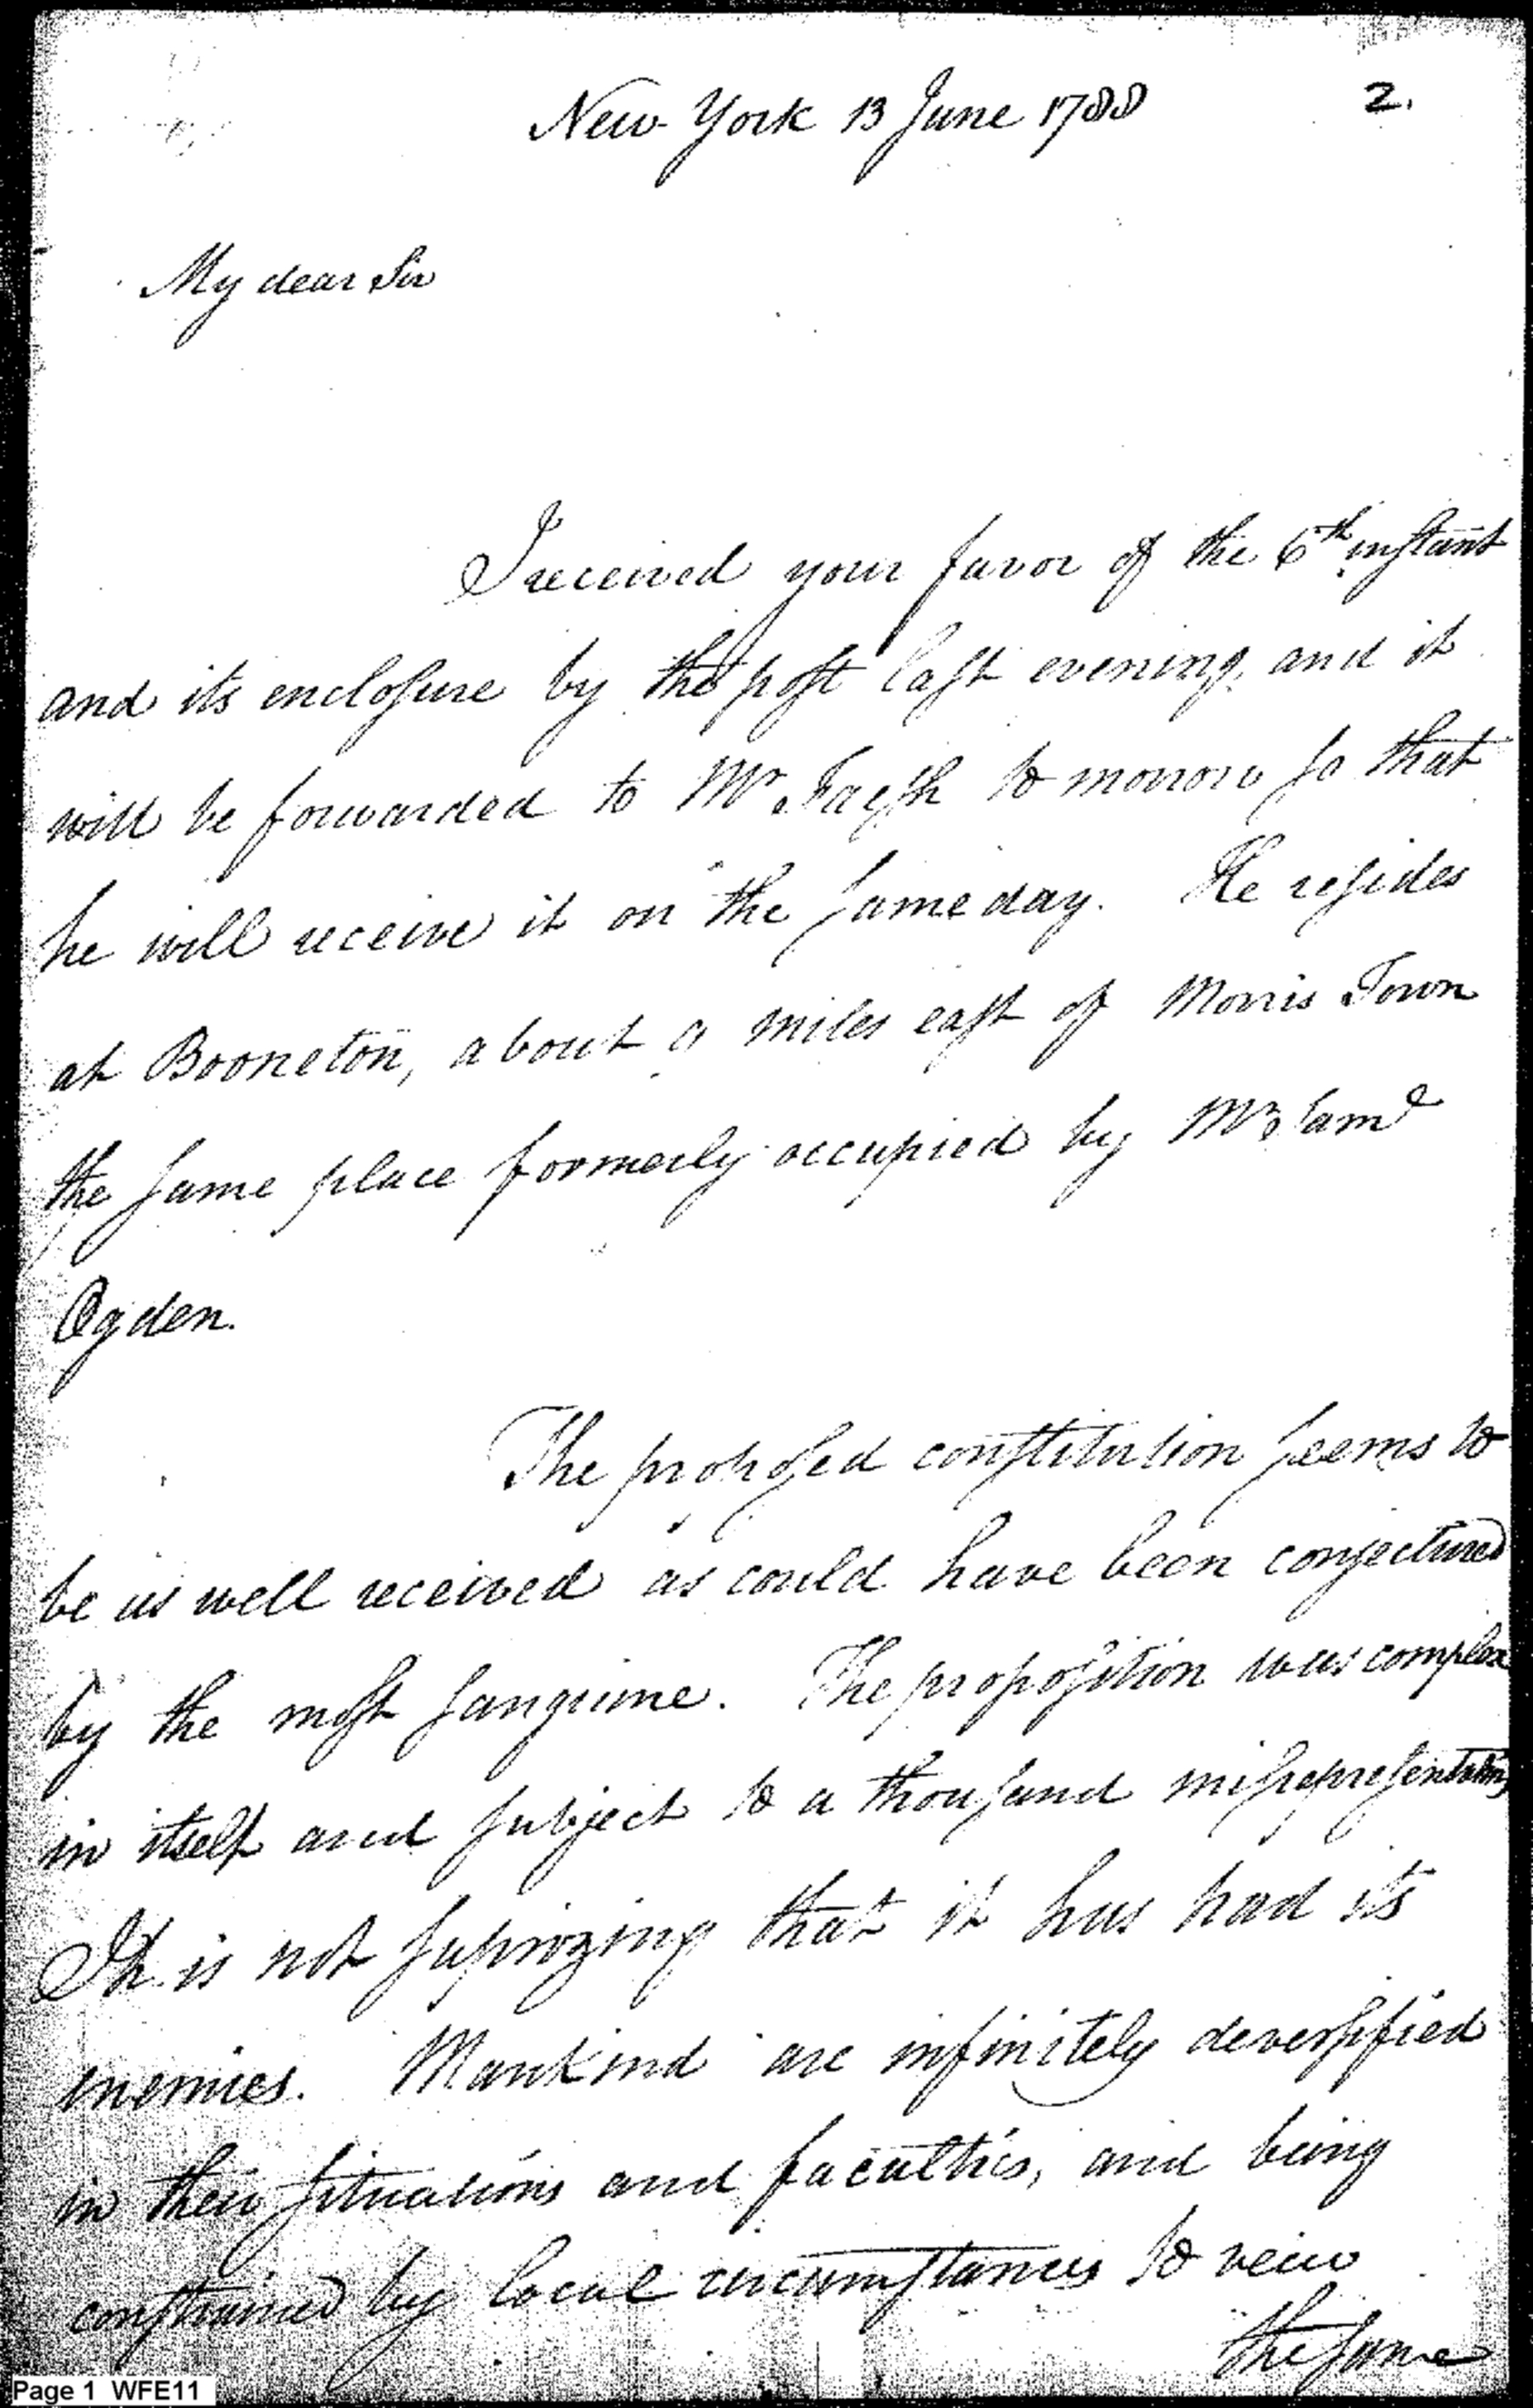 New York 13 June 1788
2.
My dear Sir
I received your favor of the 6th instant
and its enclosure by the post last evening, and it
will be forwarded to Mr Faesh to morrow so that
he will receive it on the same day. He resides
at Booneton, about 9 miles east of Morris Town
the same place formerly occupied by Mr Saml
Ogden.
The proposed constitution seems to
be as well received as could have been conjectured
by the most sanguine. The proposition was complex
in itself and subject to a thousand misrepresentations
It is not suprizing that it has had its
enemies. Mankind are infinitely deversified
in their situations and faculties, and being
constrained by local circumstances to veiw
the same
Page 1 WFE11